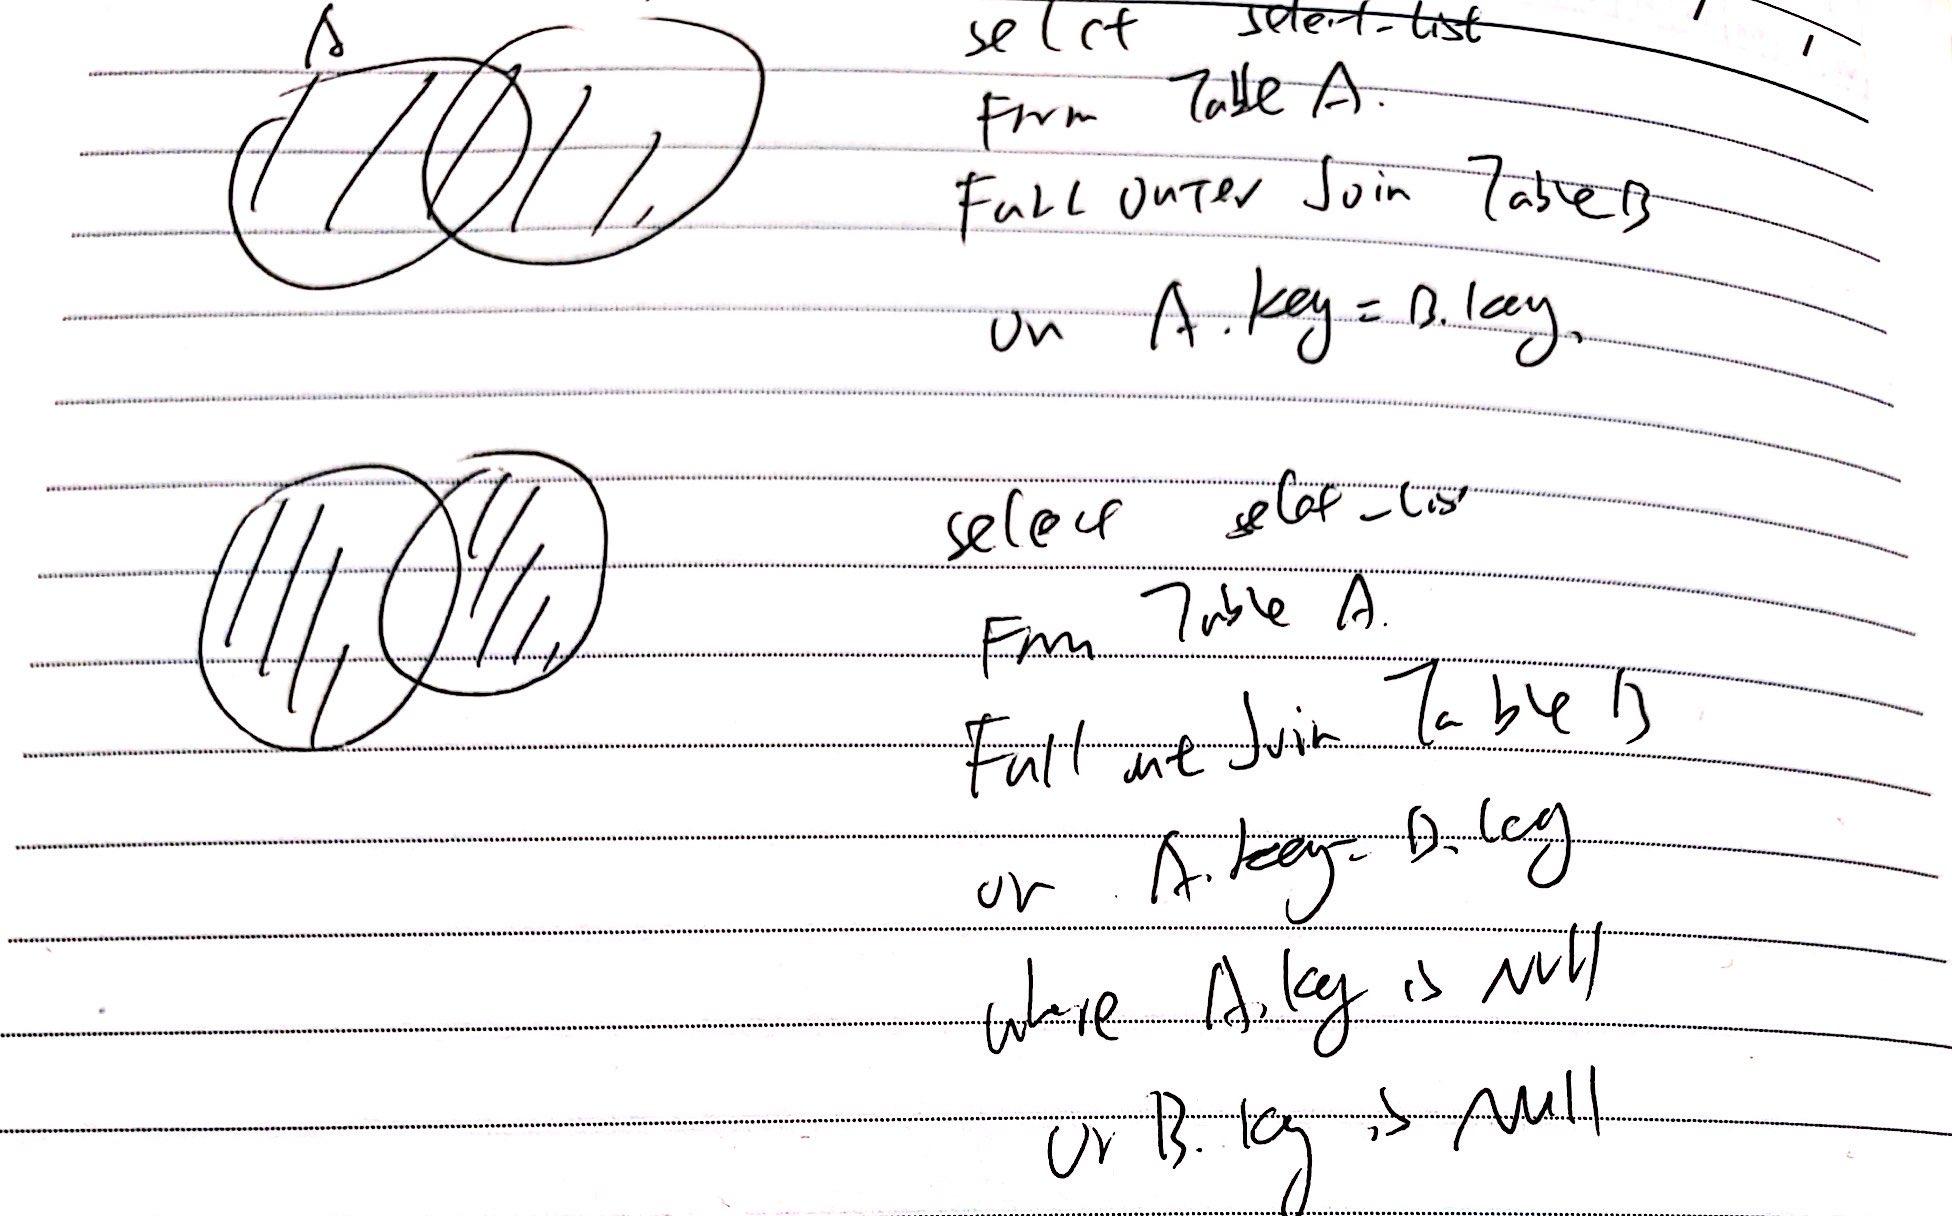 A
select select-list
From Table A.
Full outer Join Table B
on A.key = B.key,
select select-list
From Table A.
Full Join Table B
on A.key = B.key
where A.key is Null
or B.key is Null